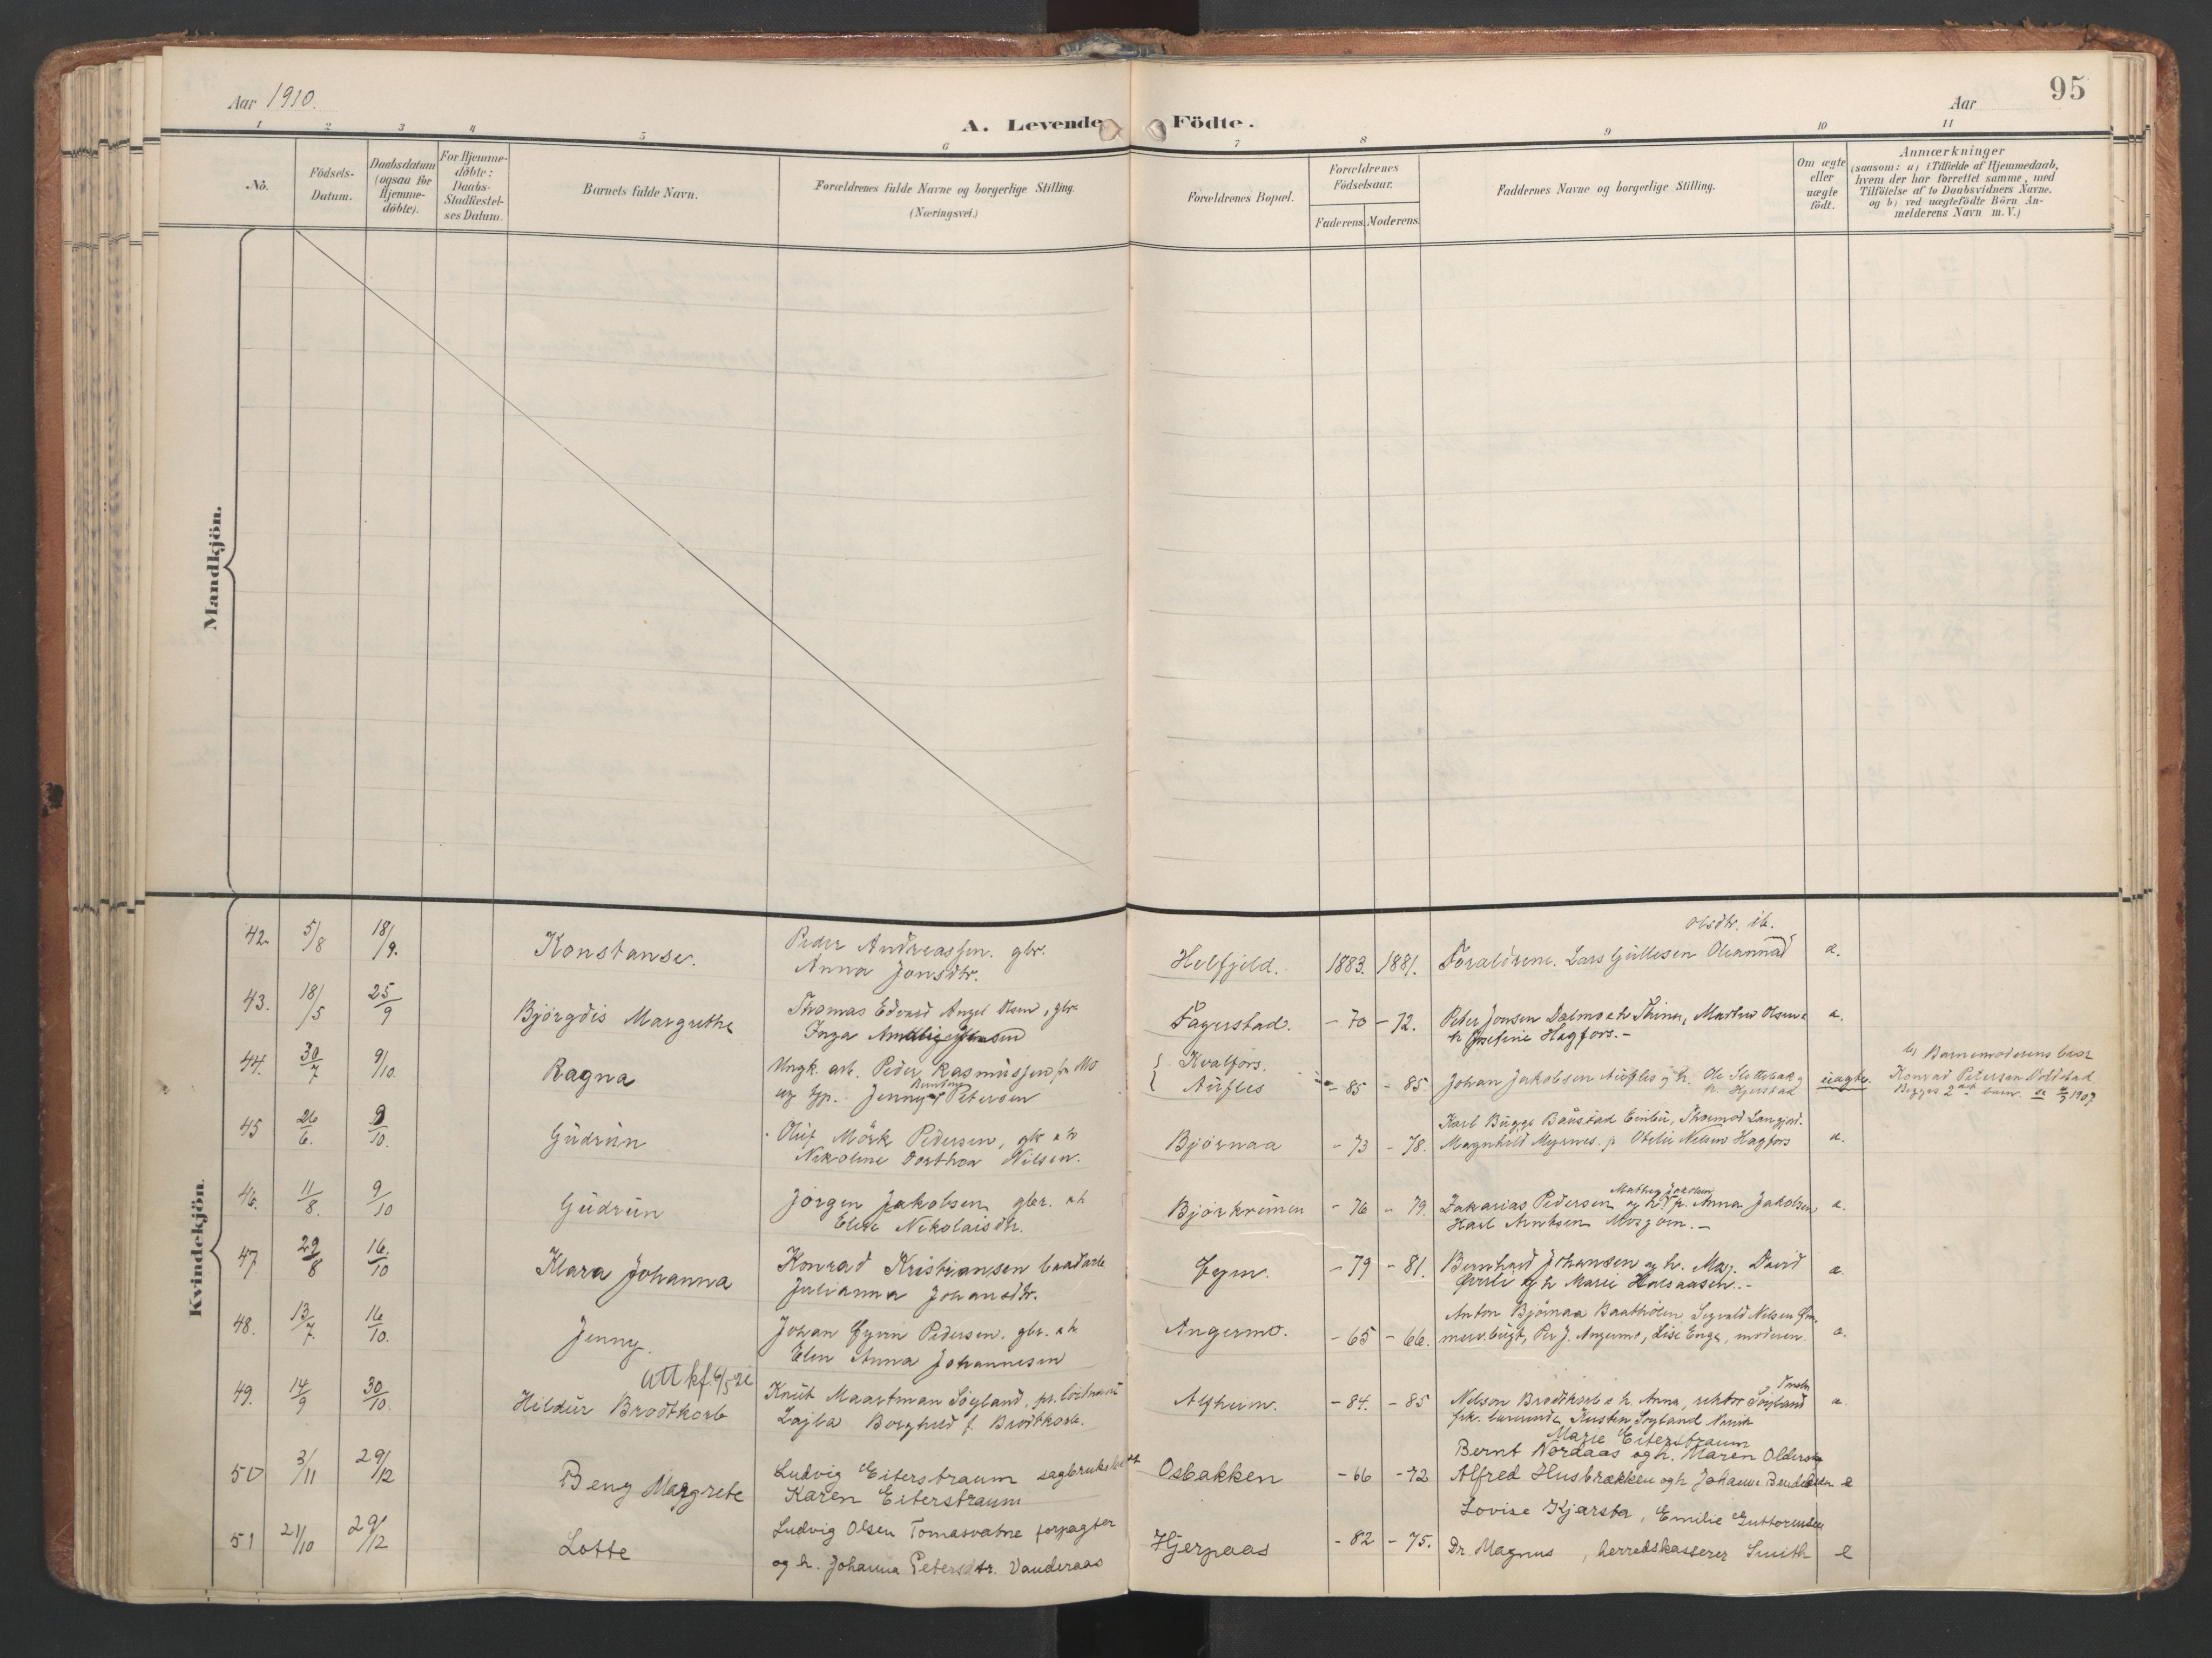 Aar 1910.
A. Levende Födte.
Aar
95
1 2 3 4 5 6 7 8 9 10 11
No.
Födsels-Datum.
Daabsdatum (ogsaa for Hjemme-döbte).
For Hjemme-döbte: Daabs-Stadfæstel-ses Datum.
Barnets fulde Navn.
Forældrenes fulde Navne og borgerlige Stilling.
(Næringsvei.)
Forældrenes Bopæl.
Forældrenes Födselsaar.
Faderens. Moderens.
Faddernes Navne og borgerlige Stilling.
Om ægte eller uægte födt.
Anmærkninger
(saasom: a) i Tilfælde af Hjemmedaab,
hvem der har forrettet samme, med
Tilföielse af to Daabsvidners Navne.
og b) ved uægtefödte Börn An-
melderens Navn m. V.)
Mandkjön.
Kvindekjön.
42. 5/8 18/9. Konstanse.
Peder Andreassen. gbr.
Anna Jonsdtr.
Helfjeld. 1883. 1881.
olsdtr. ib.
Foraldrene. Lars Gullesen Oleanna
æ.
43. 18/5 25/9 Björgdis Margrethe
Thomas Edvard Angel Olsen, gbr.
Inga Amalie Jensen
Fagerstad. - 70 - 72.
Peter Jonsen Dalmo e h Trina, Martin Olsen e
h Josefine Hagfors. -
æ.
44. 30/7 9/10. Ragna
Ungk. arb. Peder Rasmussen fr Mo
og Jenny Petersen
Kvalfors.
Aufles - 85 - 85.
Johan Jakobsen Aufles og h.
h. Hjerstad
uægte.
b) Barnemoderens bror
Konrad Petersen Voldstad
Begges 2det barn. 1907
45 26/6. 9/10. Gudrun
Oluf Mörk Pedersen, gbr e h
Nikoline Dorthea Nilsen.
Björnaa - 73 - 78.
Karl Bugge Baustad Einbu,
Magnhild Myrnes. p. Otelie Nelsen Hagfors
æ.
46. 11/8. 9/10 Gudrun
Jörgen Jakobsen gbr. e h
Elise Nikolaisdtr.
Björkrümen - 76 - 79.
Mathea Jakobsen
Zakarias Pedersen og h. p. Anna Jakobsen
Karl Arntsen Mosjöen. -
æ.
47 29/8 16/10 Klara Johanna
Konrad Kristiansen baadarb.
Julianna Johansdtr.
- 79 - 81.
Bernhard Johansen og h. Mag. David
og h Marie Halsaasen. -
æ.
48. 13/7. 16/10. Jenny.
Johan Pedersen. gbr. e h
Elen Anna Johannesen
Angermo. - 65 - 66.
Anton Björnaa Baatholm, Sigvald Nelsen
Per J. Angermo, Lise Enge, moderen.
æ.
Utt kf.
49. 14/9 30/10. Hildur Brodtkorb
Knut Maartman Söyland, pr. löitnant
Lajla Borghild f. Brodtkorb.
Alfheim. - 84. - 85
Nelson Brodtkorb e h Anna, rektor Söyland
frk. Kirsten Söyland
æ
50 3/11 29/12 Beng Margrete
Ludvig Eiterstraum sagbruksbest
Karen Eiterstraum
Osbakken - 66 - 72
Marie Eiterstraum
Bernt Nordaas og h. Maren Olderskog
Alfred Husbrækken og h Johanne Bendiksen
e
51 21/10 29/12 Lotte
Ludvig Olsen Tomasvatne forpagter
og h. Johanna Petersdtr. Vanderaas
Hjerpaas - 82 - 75.
Lovise Kjærsta, Emilie Guttormsen
Dr. Magnus, herredskasserer Smith
e